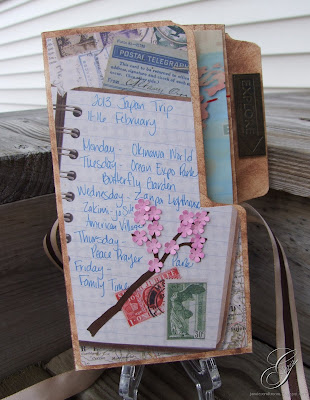 POSTAL TELEGRAPH
2013 Japan Trip
11-16 February
Monday - Okinawa World
Tuesday - Ocean Expo Park
Butterfly Garden
Wednesday - Zanpa Lighthouse
Zakimi-jo
American Village
Thursday -
Peace Prayer Park
Friday -
Family Time
EXPLORE